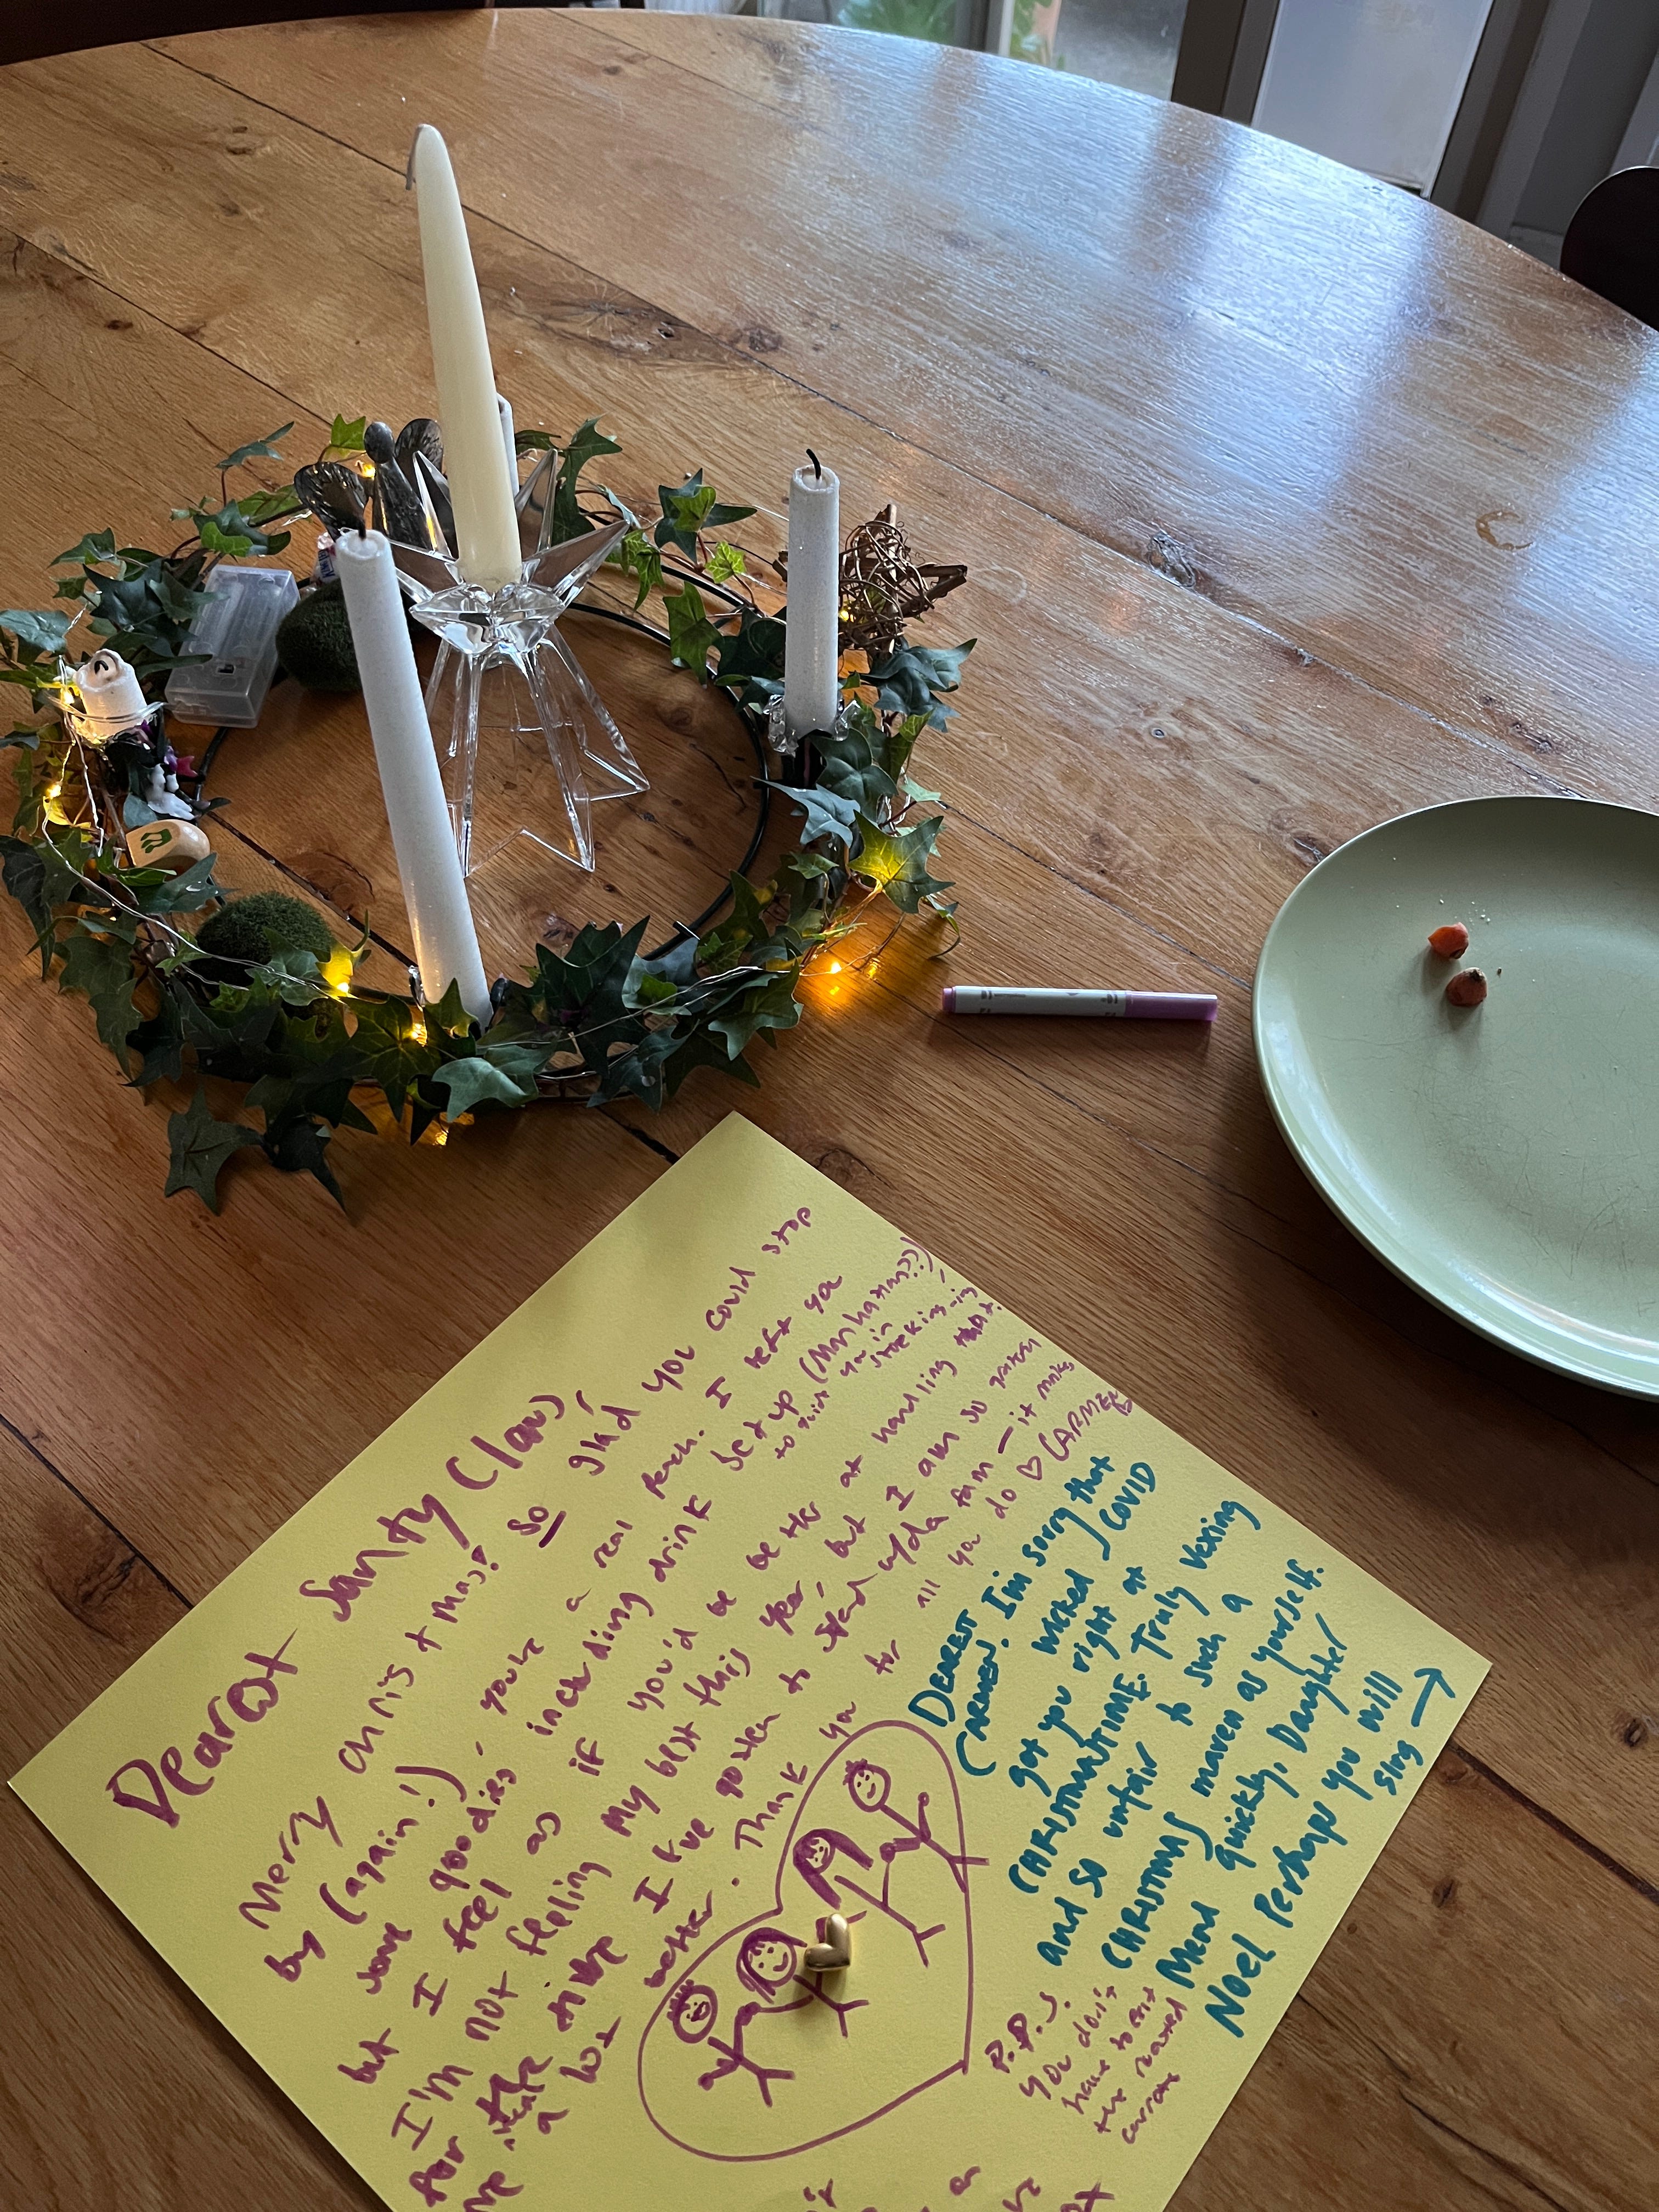 Dearest Santy Claus,
Merry Christmas! So glad you could stop
by (again!) you're a real peach. I left you
some goodies - including drink set up (Manhattan??)
but I feel as if you'd be better at handling that.
to in
I'm not feeling my best this year, but I am so
for the
I've gotten to spend w/da fam — it makes
me a lot better. Thank you for all you do ♡ CARMEN
DEAREST
CARMEN. I'm sorry that
got you right at
wicked COVID
CHRISTMASTIME. Truly vexing
and so unfair to such a
CHRISTMAS maven as yourself.
Mend quickly, Daughter
Noel Perhaps you will
sing →
P.P.S.
you don't
have to eat
the
carrots